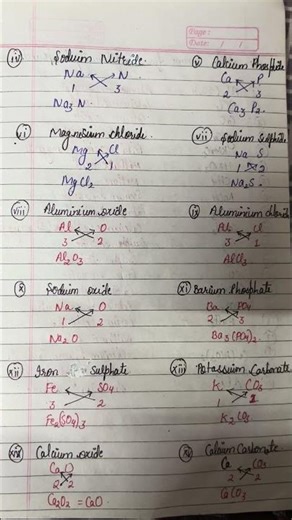 Page :
Date : / /
iv) Sodium Nitride.
Na N
1 3
Na3 N.
v) Calcium Phosphate
Ca P
2 3
Ca3 P2.
vi) Magnesium chloride.
Mg Cl
2 1
MgCl2
vii) Sodium Sulphide
Na S
1 2
Na2S.
viii) Aluminium oxide
Al O
3 2
Al2O3
ix) Aluminium chloride
Al Cl
3 1
AlCl3
x) Sodium oxide
Na O
1 2
Na2O
xi) Barium Phosphate
Ba PO4
2 3
Ba3(PO4)2
xii) Iron Sulphate
Fe SO4
3 2
Fe2(SO4)3
xiii) Potassium Carbonate
K CO3
1 2
K2CO3
xiv) Calcium oxide
Ca O
2 2
Ca2O2 = CaO
xv) Calcium Carbonate
Ca CO3
2 2
CaCO3